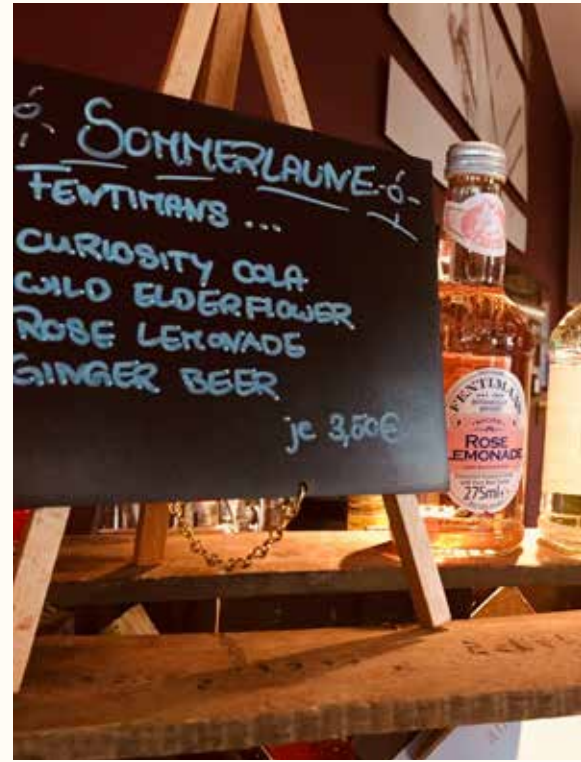 SOMMERLAUNE
FENTIMANS ...
CURIOSITY COLA
WILD ELDERFLOWER
ROSE LEMONADE
GINGER BEER
je 3,50€
FENTIMANS
ROSE
LEMONADE
275ml